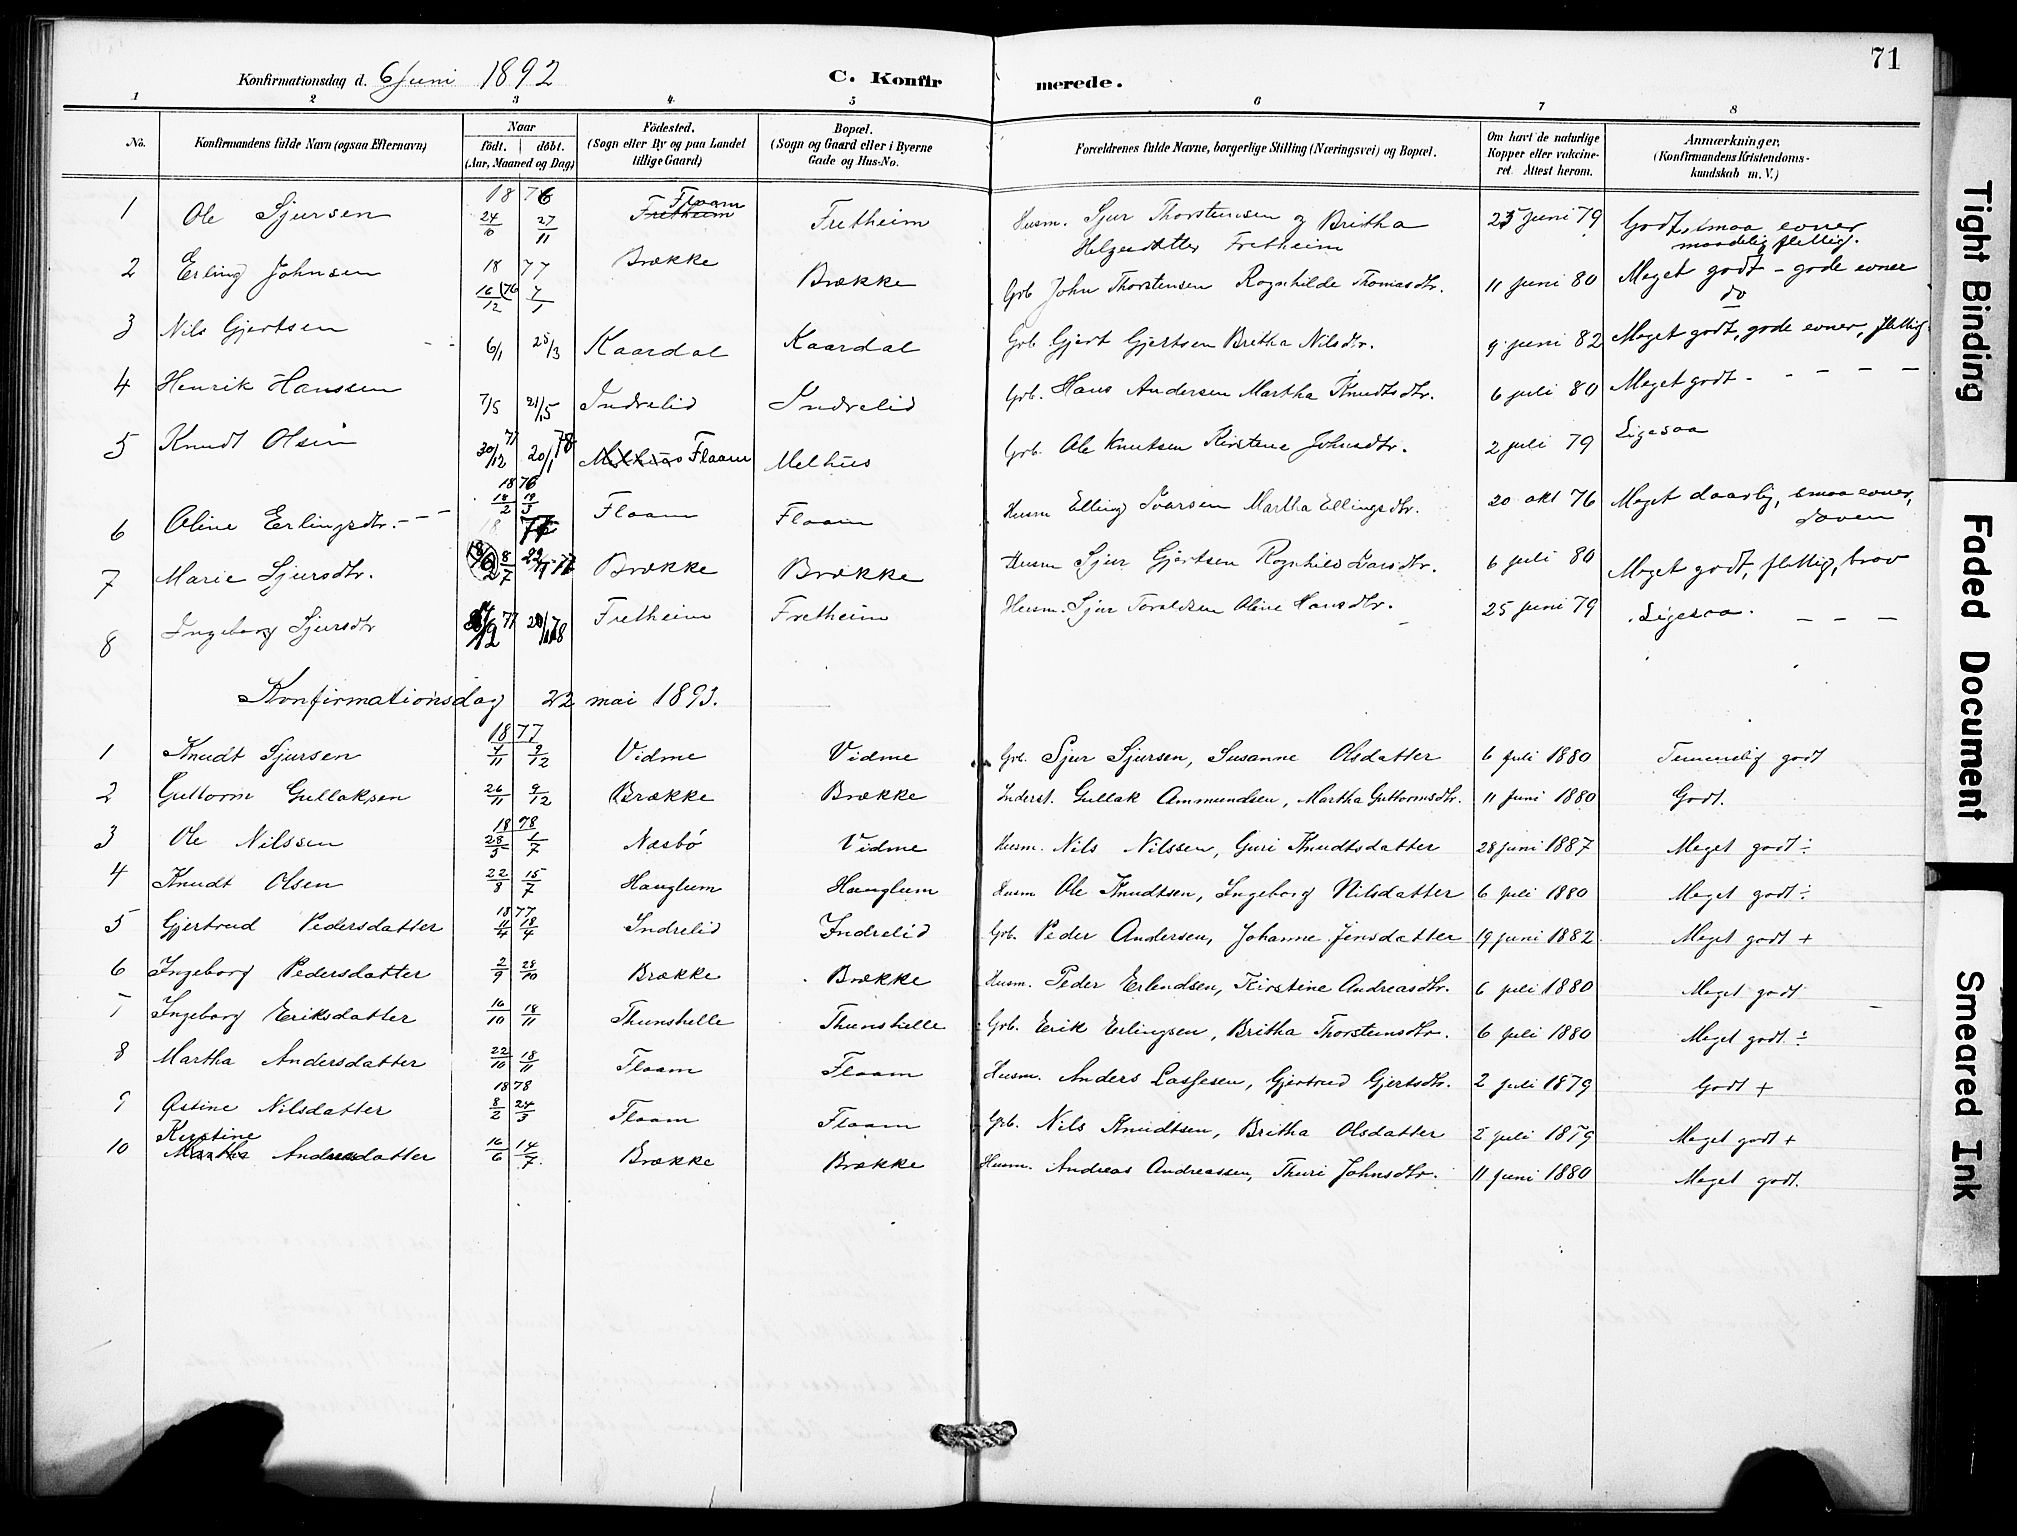 71
Konfirmationsdag d. 6 Juni 1892 C. Konfirmerede.
1 2 3 4 5 6 7 8
No. Konfirmandens fulde Navn (ogsaa Efternavn) Naar födt. döbt. (Aar, Maaned og Dag) Födested. (Sogn eller By og paa Landet tillige Gaard) Bopæl. (Sogn og Gaard eller i Byerne Gade og Hus-No. Forældrenes fulde Navne, borgerlige Stilling (Næringsvei) og Bopæl. Om havt de naturlige Kopper eller vakcineret. Attest herom. Anmærkninger. (Konfirmandens Kristendomskundskab m. V.)
1 Ole Sjursen 1876 24/10 27/11 Fretheim Flaam Fretheim Husm. Sjur Thorstensen og Britha Helgesdatter Fretheim 25 Juni 79 Godt, smaa evner maadelig flittig.
2 Erling Johnsen 1877 16/12 76 7/1 Brække Brække Grb John Thorstensen Rognhilde Thomasdtr. 11 juni 80 Meget godt - gode evner do
3 Nils Gjertsen - - 6/1 25/3 Kaardal Kaardal Grb Gjert Gjertsen Britha Nilsdtr. 9 juni 82 Meget godt, gode evner, flittig
4 Henrik Hanssen 7/5 21/5 Indrelid Indrelid Grb. Hans Andersen Martha Knudtsdtr. 6 juli 80 Meget godt - - - - -
5 Knudt Olsen 30/12 77 20/1 78 Melhuus Flaam Melhus Grb. Ole Knutsen Kirstene Johnsdtr. 2 juli 79 Ligesaa
6 Oline Erlingsdtr. - - 1876 18/2 19/3 Flaam Flaam Husm Elling Ivarsen Martha Ellingsdtr. 20 okt 76 Meget daarlig, smaa evner, doven
7 Marie Sjursdtr. Brække Brække Husm Sjur Gjertsen Rognhild Ivarsdtr. 6 juli 80 Meget godt, flittig, brav
8 Ingeborg Sjursdtr Fretheim Fretheim Husm. Sjur Toraldsen Oline Hansdtr. 25 juni 79 Ligesaa. - - -
Konfirmationsdag 22 mai 1893.
1 Knudt Sjursen 1877 4/11 9/12 Vidme Vidme Grb. Sjur Sjursen, Susanne Olsdatter 6 juli 1880 Temmelig godt
2 Guttorm Gullaksen 26/11 9/12 Brække Brække Inderst. Gullak Ammundsen, Martha Guttormsdtr. 11 Juni 1880 Godt.
3 Ole Nilssen 1878 28/5 1/7 Næsbö Vidme Husm. Nils Nilssen, Guri Knudtsdatter 28 juni 1887 Meget godt ÷
4 Knudt Olsen 22/8 15/7 Hauglum Hauglum Husm Ole Knudtsen, Ingeborg Nilsdatter 6 juli 1880 Meget godt ÷
5 Gjertrud Pedersdatter 1877 11/4 18/4 Indrelid Indrelid Grb. Peder Andersen, Johanne Jensdatter 19 juni 1882. Meget godt +
6 Ingeborg Pedersdatter 2/9 28/10 Brække Brække Husm. Peder Erlendsen, Kirstine Andreasdtr. 6 juli 1880 Meget godt
7 Ingeborg Eriksdatter 16/10 18/11 Thunshelle Thunshelle Grb. Erik Erlingsen, Britha Thorsteinsdtr. 6 juli 1880 Meget godt ÷
8 Martha Andersdatter 22/10 18/11 Flaam Flaam Husm. Anders Lassesen, Gjertrud Gjertsdtr. 2 juli 1879 Godt +
9 Østine Nilsdatter 1878 8/2 24/3 Flaam Flaam Grb. Nils Knudtsen, Britha Olsdatter 2 juli 1879 Meget godt +
10 Kirstine Martha Andreasdatter 16/6 14/7 Brække Brække Husm. Andreas Andreassen, Thuri Johnsdtr. 11 juni 1880 Meget godt.
Tight Binding
Faded Document
Smeared Ink